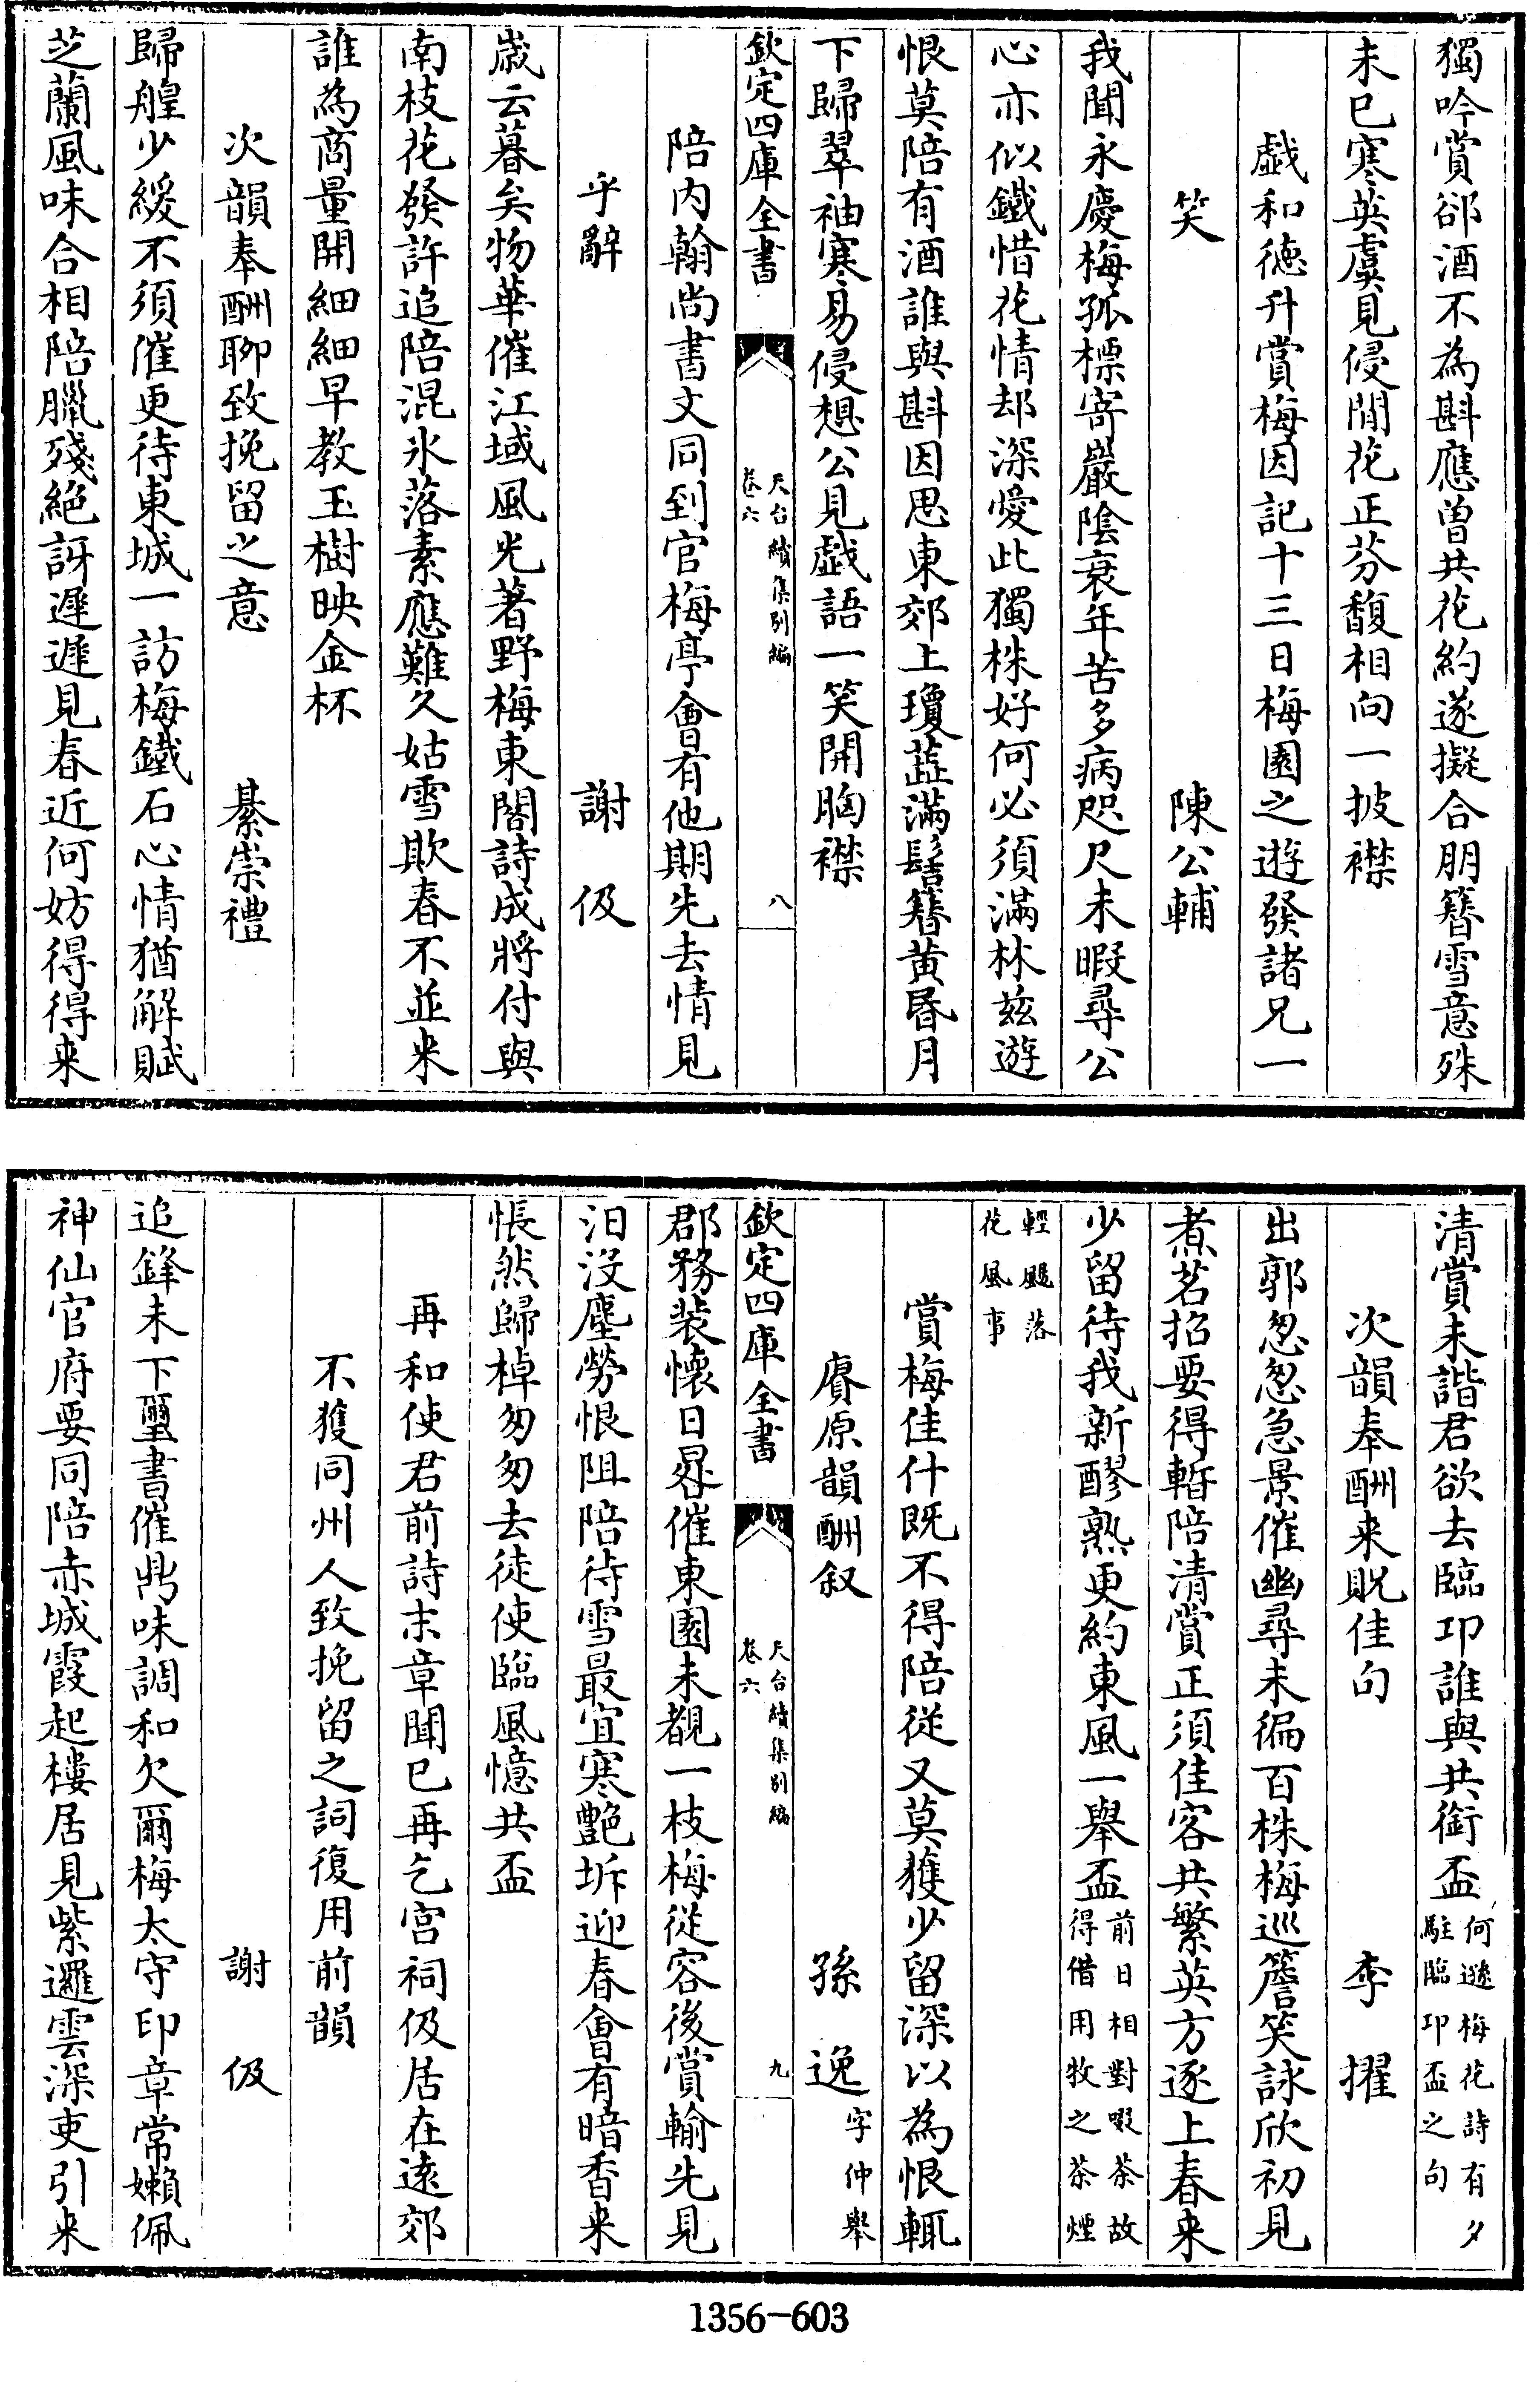 獨吟賞郤酒不為斟應曽共花約遂擬合朋簪雪意殊
未已寒英虞見侵閒花正芬馥相向一披襟
戯和徳升賞梅因記十三日梅園之遊發諸兄一
笑 陳公輔
我聞永慶梅孤標寄嚴陰衰年苦多病咫尺未暇尋公
心亦似鐵惜花情却深愛此獨株好何必須滿林兹遊
恨莫陪有酒誰與斟因思東郊上瓊蘂滿髻簪黄昏月
下歸翠袖寒易侵想公見戯語一笑開胸襟
欽定四庫全書 天台續集别編 卷六 八
陪内翰尚書文同到官梅亭會有他期先去情見
乎辭 謝伋
嵗云暮矣物華催江域風光著野梅東閣詩成將付與
南枝花發許追陪混氷落素應難久姑雪欺春不並来
誰為商量開細細早教玉樹映金杯
次韻奉酬聊致挽留之意 綦崇禮
歸艎少緩不須催更待東城一訪梅鐵石心情猶解賦
芝蘭風味合相陪臘殘絕訝遲遲見春近何妨得得来
清賞未諧君欲去臨卭誰與共銜盃 何遜梅花詩有夕駐臨卭盃之句
次韻奉酬来貺佳句 李擢
出郭怱怱急景催幽尋未徧百株梅巡簷笑詠欣初見
煮茗招要得暫陪清賞正須佳客共繁英方逐上春来
少留待我新醪熟更約東風一舉盃 前日相對啜茶故得借用牧之茶煙
輕颺落花風事
賞梅佳什既不得陪從又莫獲少留深以為恨輒
賡原韻酬叙 孫逸 字仲舉
郡務裝懷日晷催東園未覩一枝梅從容後賞輸先見
汨没塵勞恨阻陪待雪最宜寒艷坼迎春會有暗香来
悵然歸棹匆匆去徒使臨風憶共盃
欽定四庫全書 天台續集别編 卷六 九
再和使君前詩末章聞已再乞宫祠伋居在遠郊
不獲同州人致挽留之詞復用前韻
謝伋
追鋒未下璽書催鼎味調和欠爾梅太守印章常嬾佩
神仙官府要同陪赤城霞起樓居見紫邏雲深吏引来
1356-603